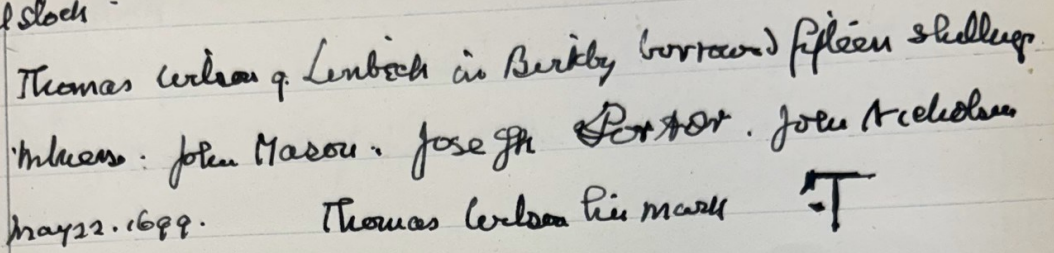 & stock
Thomas Wilson of Limbeck in Birkby borrowed fifteen shillings
Witness: John Mason. Joseph Portor. John Nicholson
May 22. 1699. Thomas Wilson his mark T